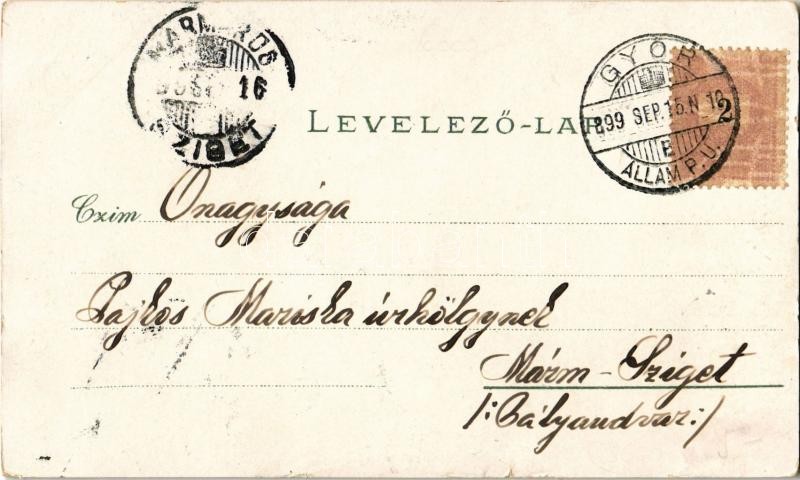 MARMAROS
16
SZIGET
LEVELEZŐ-LAP
GYŐR
899 SEP. 15. N 10
E
ÁLLAM P. U.
2
Czim Onagysága
Lajkos Mariska úrhölgynek
Márm-Sziget
/:Pályaudvar:/